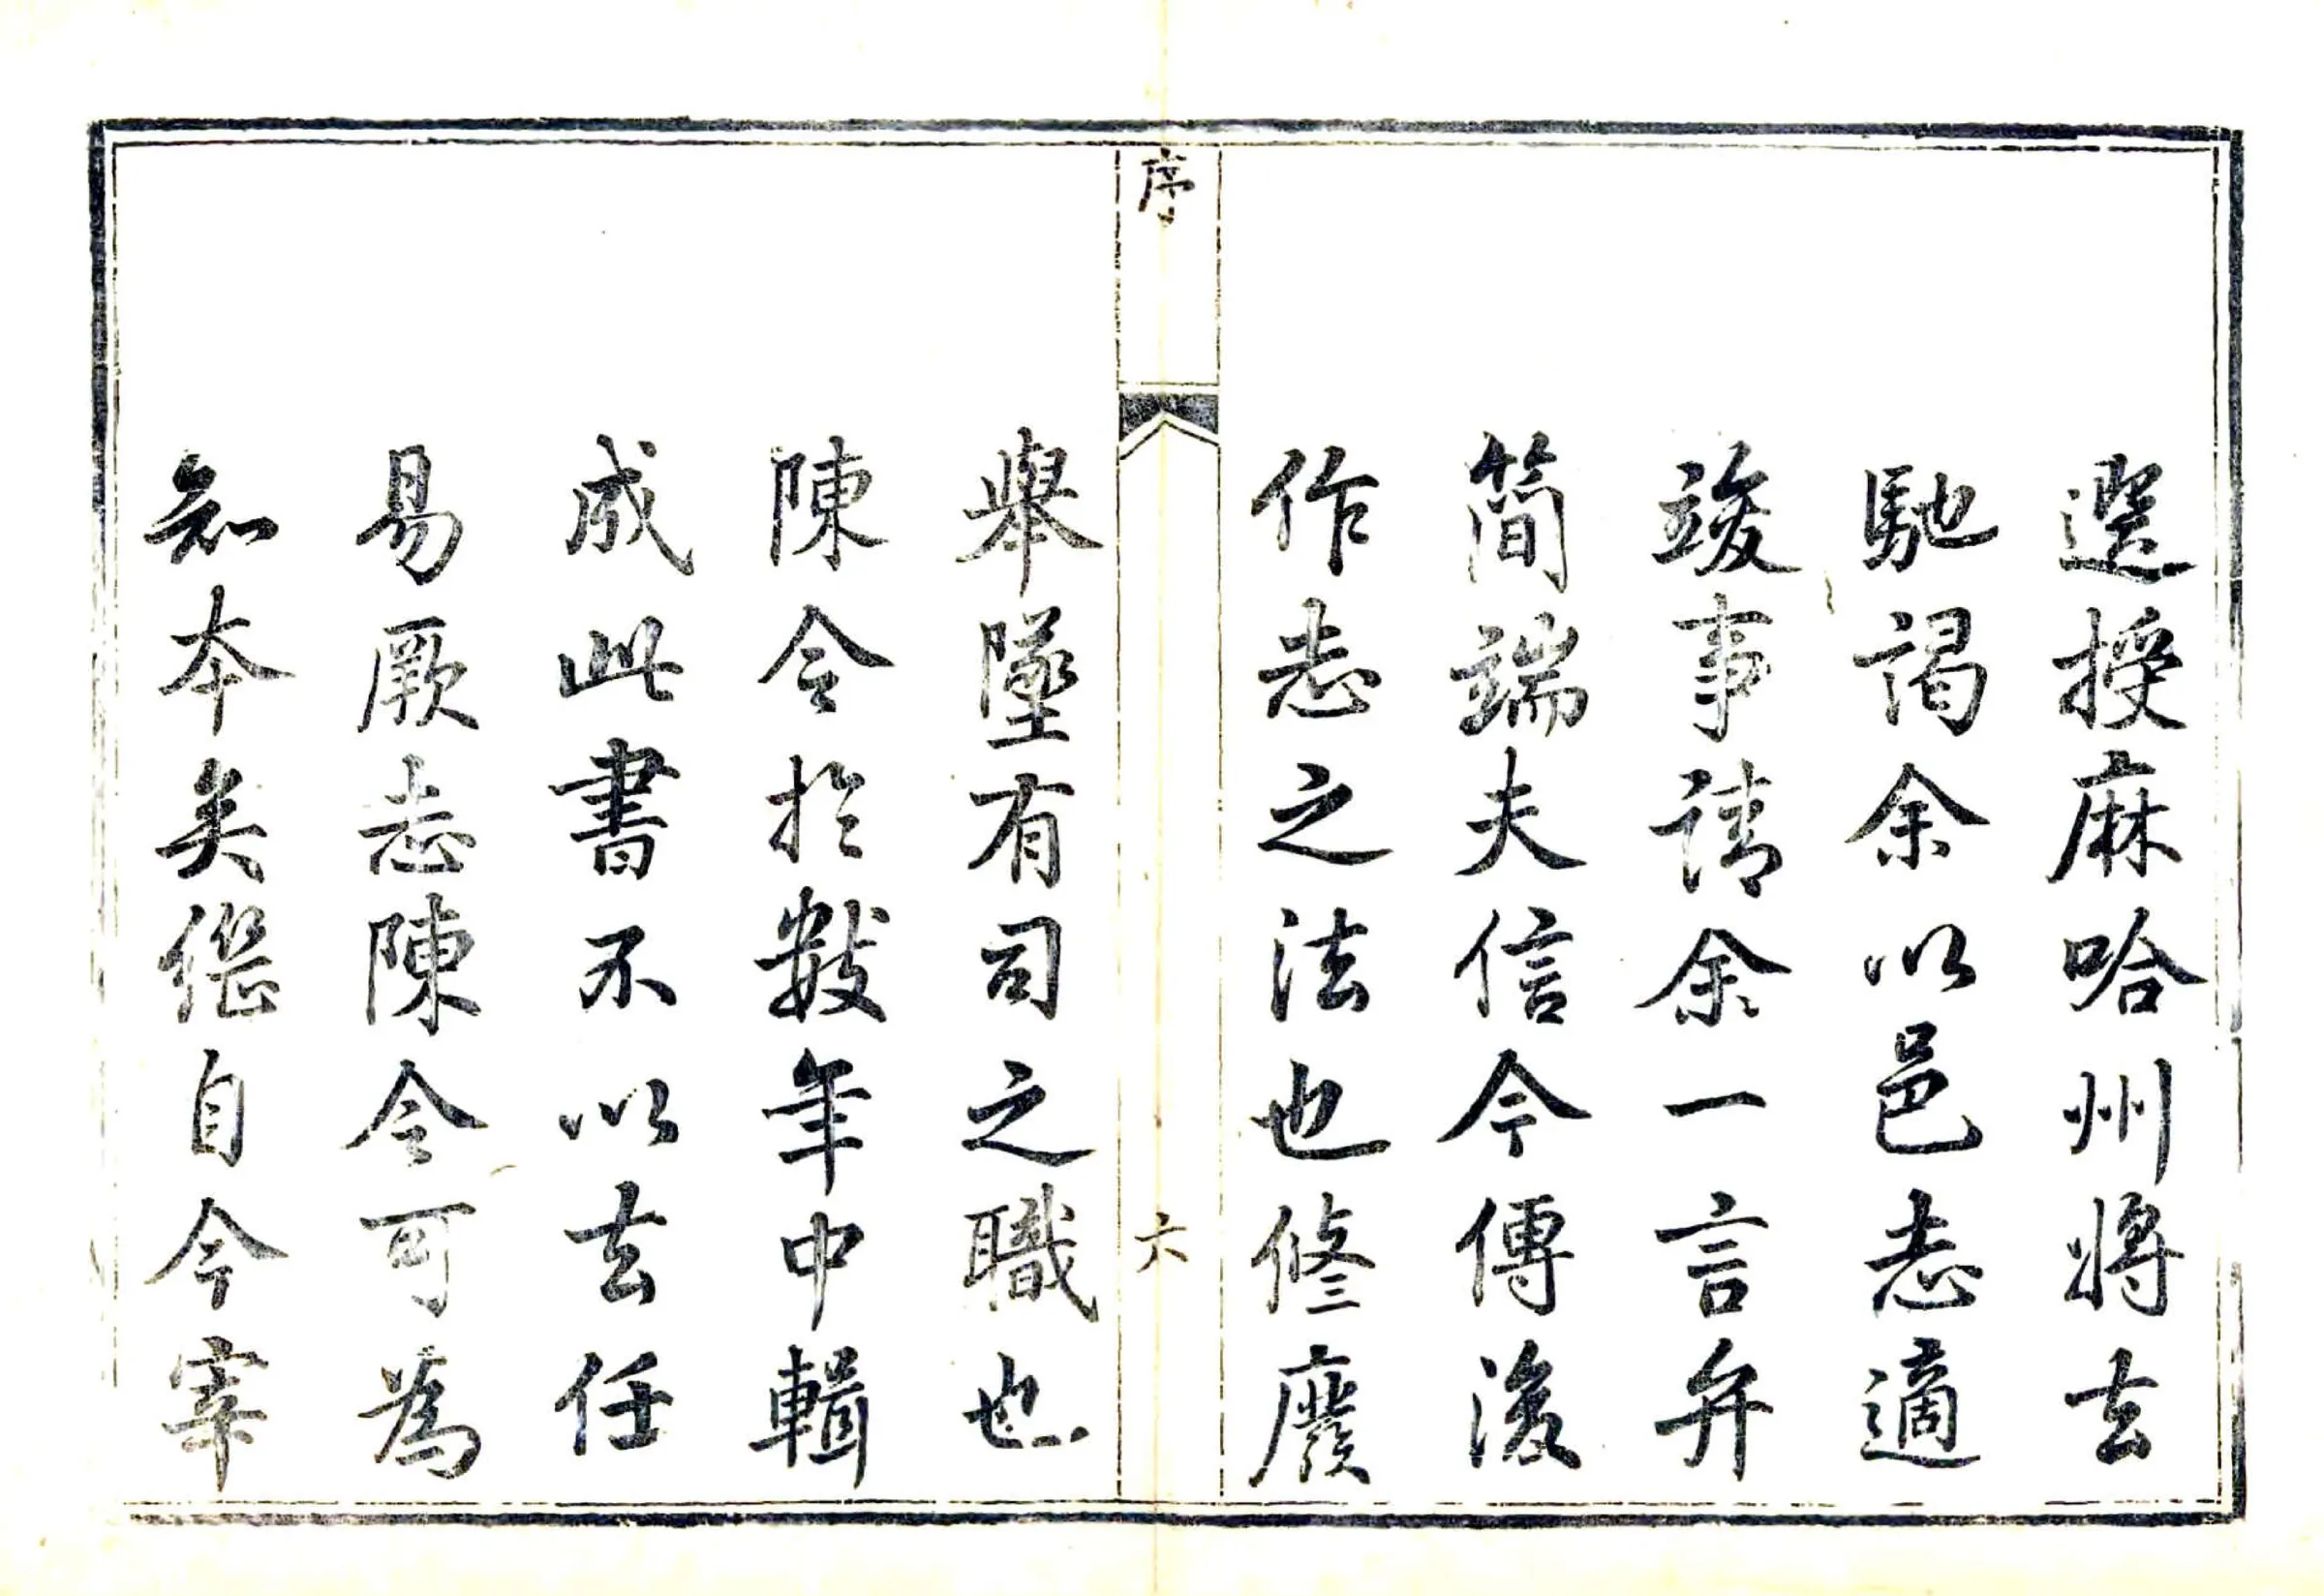 選授麻哈州將去
馳謁余以邑志適
竣事請余一言弁
簡端夫信今傳後
作志之法也修廢
序
六
舉墜有司之職也
陳令於數年中輯
成此書不以去任
易厥志陳令可為
知本矣繼自今宰